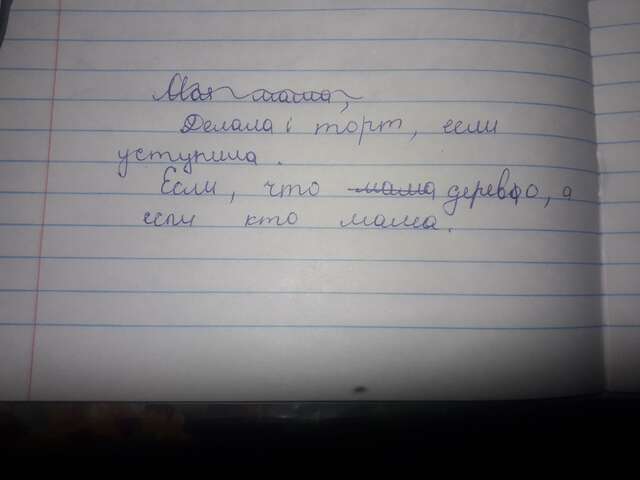 Моя мама,
Делала торт, если
уступила.
Если, что мама дерево, а
если кто мама.